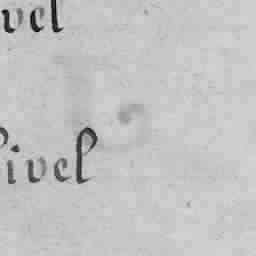 vel
ivel